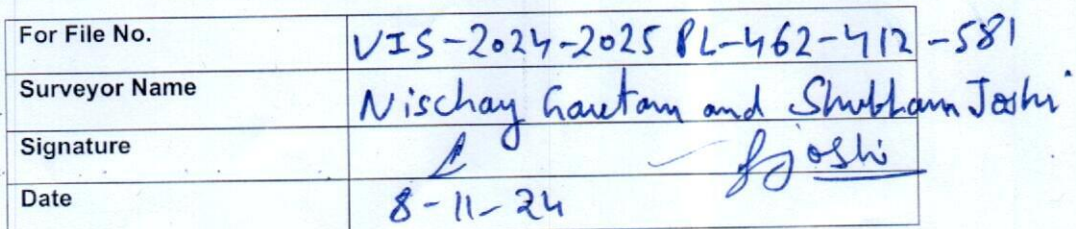 For File No. VIS-2024-2025 PL-462-412-581
Surveyor Name Nischay Gautam and Shubham Joshi
Signature Sjoshi
Date 8-11-24